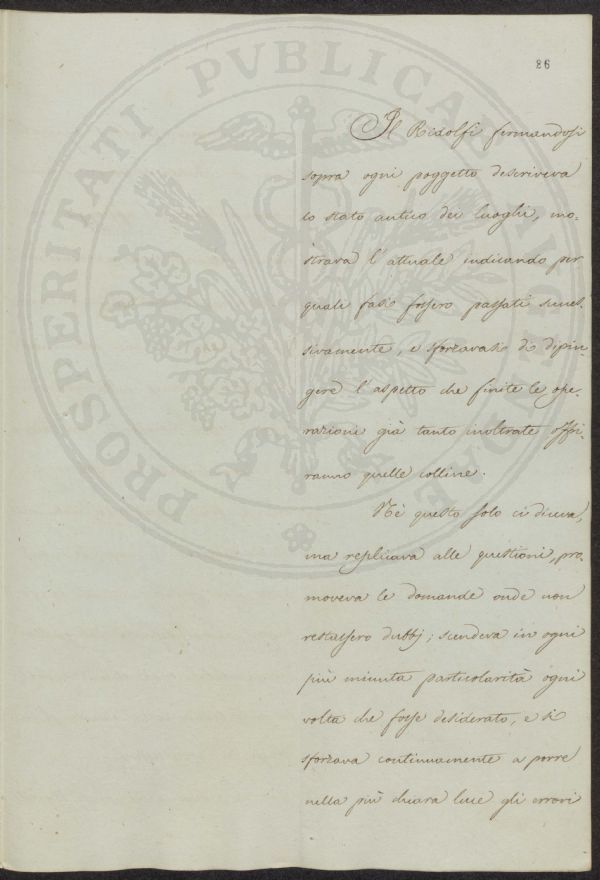 86
Il Ridolfi fermandosi
sopra ogni poggetto descriveva
lo stato antico dei luoghi, mo=
strava l'attuale indicando per
quale fasi fossero passati succes=
sivamente, e sforzavasi di dipin=
gere l'aspetto che finite le ope=
razioni già tanto inoltrate offri=
ranno quelle colline.
Nè questo solo ci diceva,
ma replicava alle questioni, pro=
moveva le domande onde non
restassero dubbj; scendeva in ogni
più minuta particolarità ogni
volta che fosse desiderato, e si
sforzava continuamente a porre
nella più chiara luce gli errori
PROSPERITATI PVBLICAE AVGENDAE